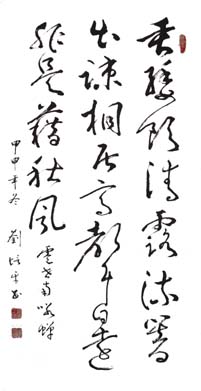 垂緌飲清露流響
出疎桐居高聲自遠
非是藉秋風 虞世南咏蟬
甲申年冬 劉